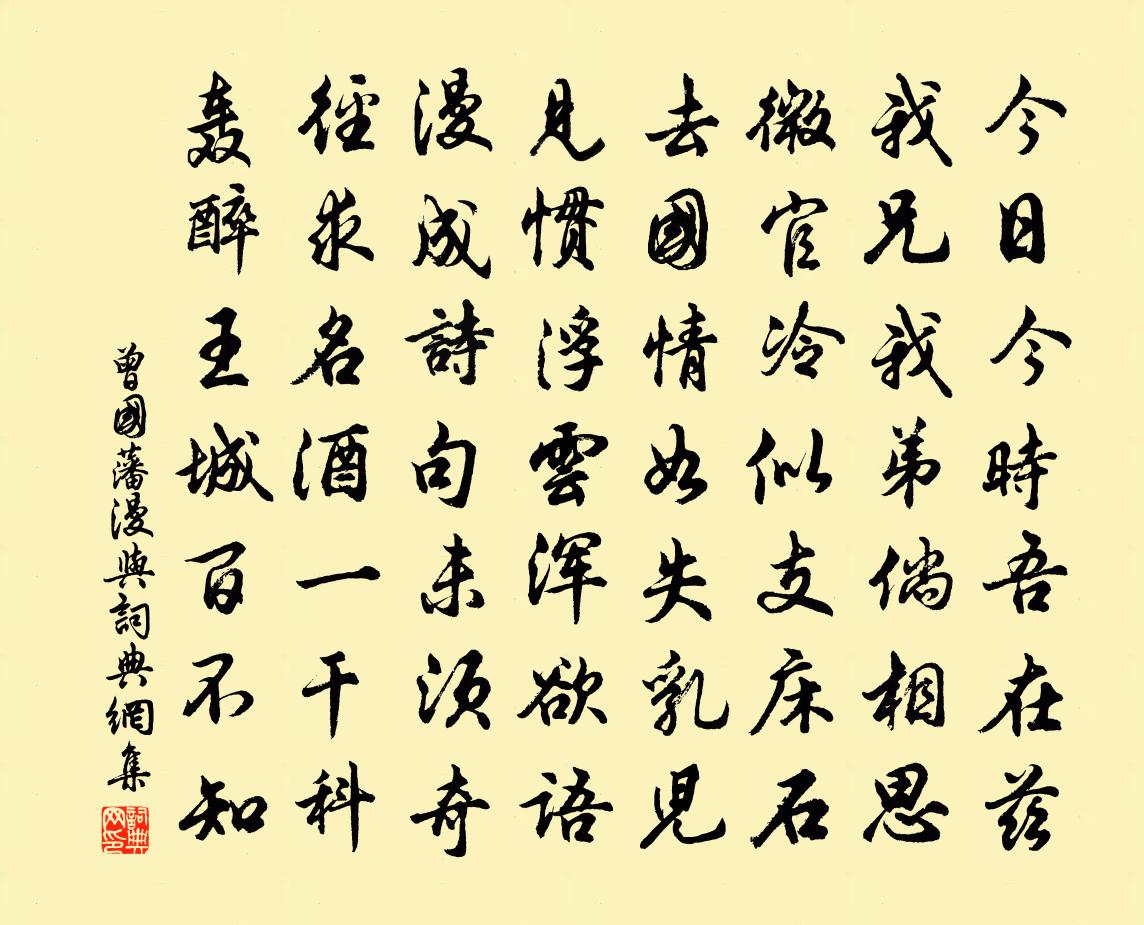 今日今時吾在茲
我兄我弟倘相思
微官冷似支床石
去國情如失乳兒
見慣浮雲渾欲語
漫成詩句未須奇
徑求名酒一千科
轟醉王城百不知
曾國藩漫與詞典網集
詞典网印